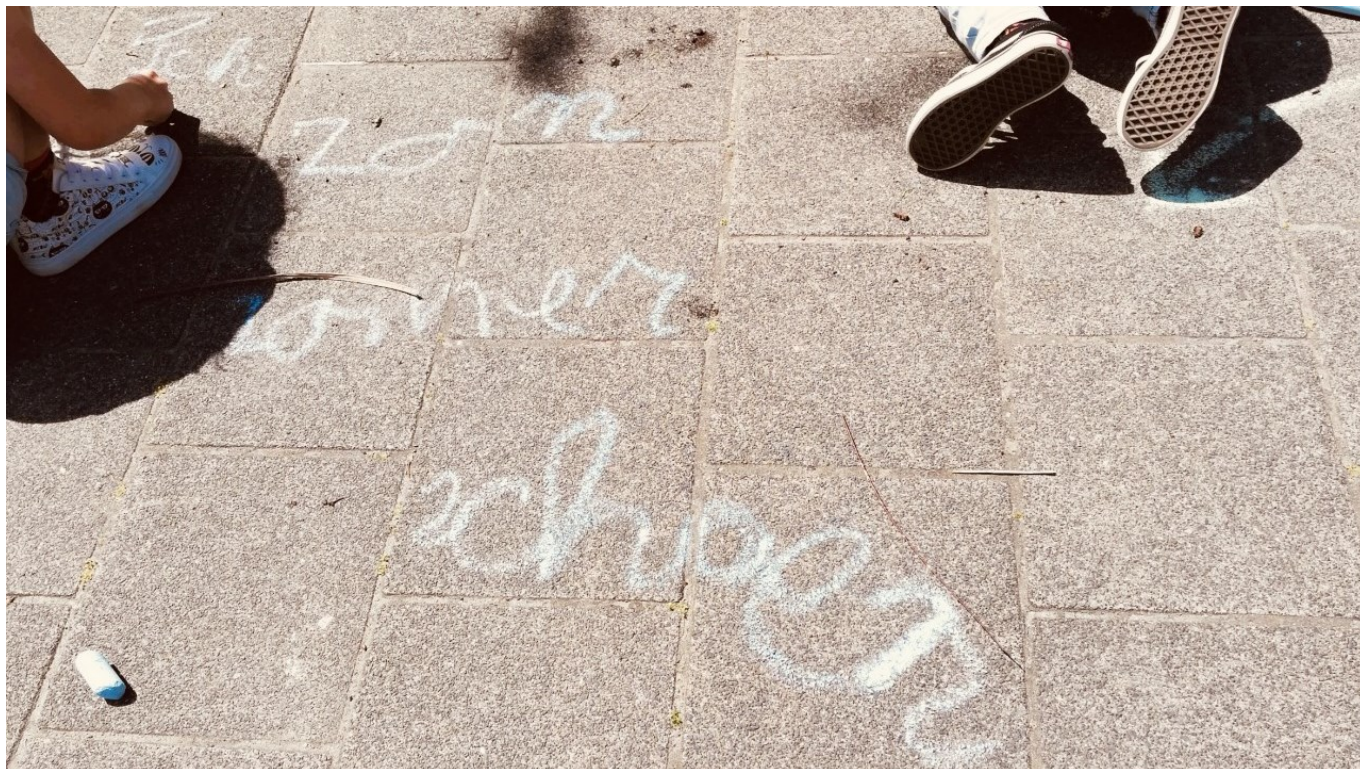 zon
zomer
schoen